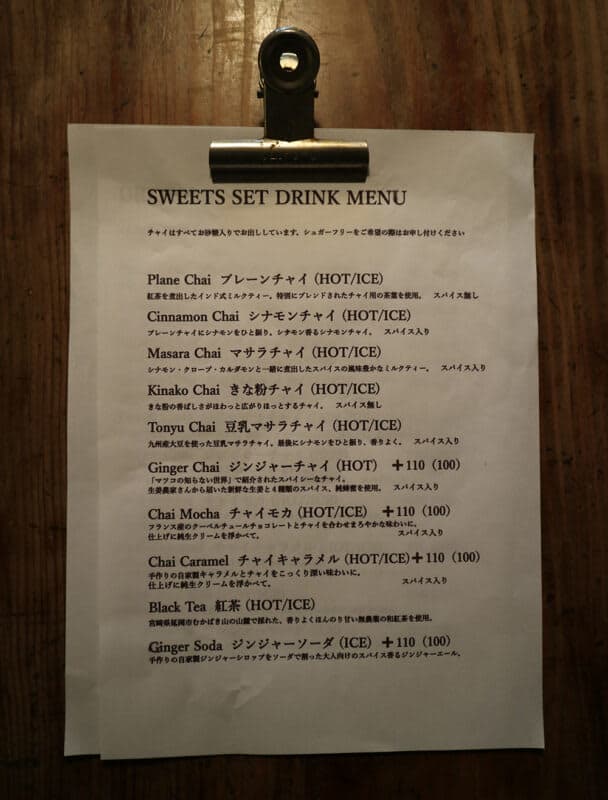 SWEETS SET DRINK MENU
チャイはすべてお砂糖入りでお出ししています。シュガーフリーをご希望の際はお申し付けください
Plane Chai プレーンチャイ (HOT/ICE)
紅茶を煮出したインド式ミルクティー。特別にブレンドされたチャイ用の茶葉を使用。 スパイス無し
Cinnamon Chai シナモンチャイ (HOT/ICE)
プレーンチャイにシナモンをひと振り。シナモン香るシナモンチャイ。 スパイス入り
Masara Chai マサラチャイ (HOT/ICE)
シナモン・クローブ・カルダモンと一緒に煮出したスパイスの風味豊かなミルクティー。 スパイス入り
Kinako Chai きな粉チャイ (HOT/ICE)
きな粉の香ばしさがほわっと広がりほっとするチャイ。 スパイス無し
Tonyu Chai 豆乳マサラチャイ (HOT/ICE)
九州産大豆を使った豆乳マサラチャイ。最後にシナモンをひと振り、香りよく。 スパイス入り
Ginger Chai ジンジャーチャイ (HOT) ＋110 (100)
「マツコの知らない世界」で紹介されたスパイシーなチャイ。
生姜農家さんから届いた新鮮な生姜と4種類のスパイス、純蜂蜜を使用。 スパイス入り
Chai Mocha チャイモカ (HOT/ICE) ＋110 (100)
フランス産のクーベルチュールチョコレートとチャイを合わせまろやかな味わいに。
仕上げに純生クリームを浮かべて。 スパイス入り
Chai Caramel チャイキャラメル (HOT/ICE)＋110 (100)
手作りの自家製キャラメルとチャイをこっくり深い味わいに。
仕上げに純生クリームを浮かべて。 スパイス入り
Black Tea 紅茶 (HOT/ICE)
宮崎県延岡市むかばき山の山麓で採れた、香りよくほんのり甘い無農薬の和紅茶を使用。
Ginger Soda ジンジャーソーダ (ICE) ＋110 (100)
手作りの自家製ジンジャーシロップをソーダで割った大人向けのスパイス香るジンジャーエール。